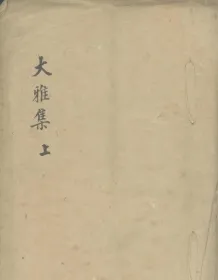 大雅集 上